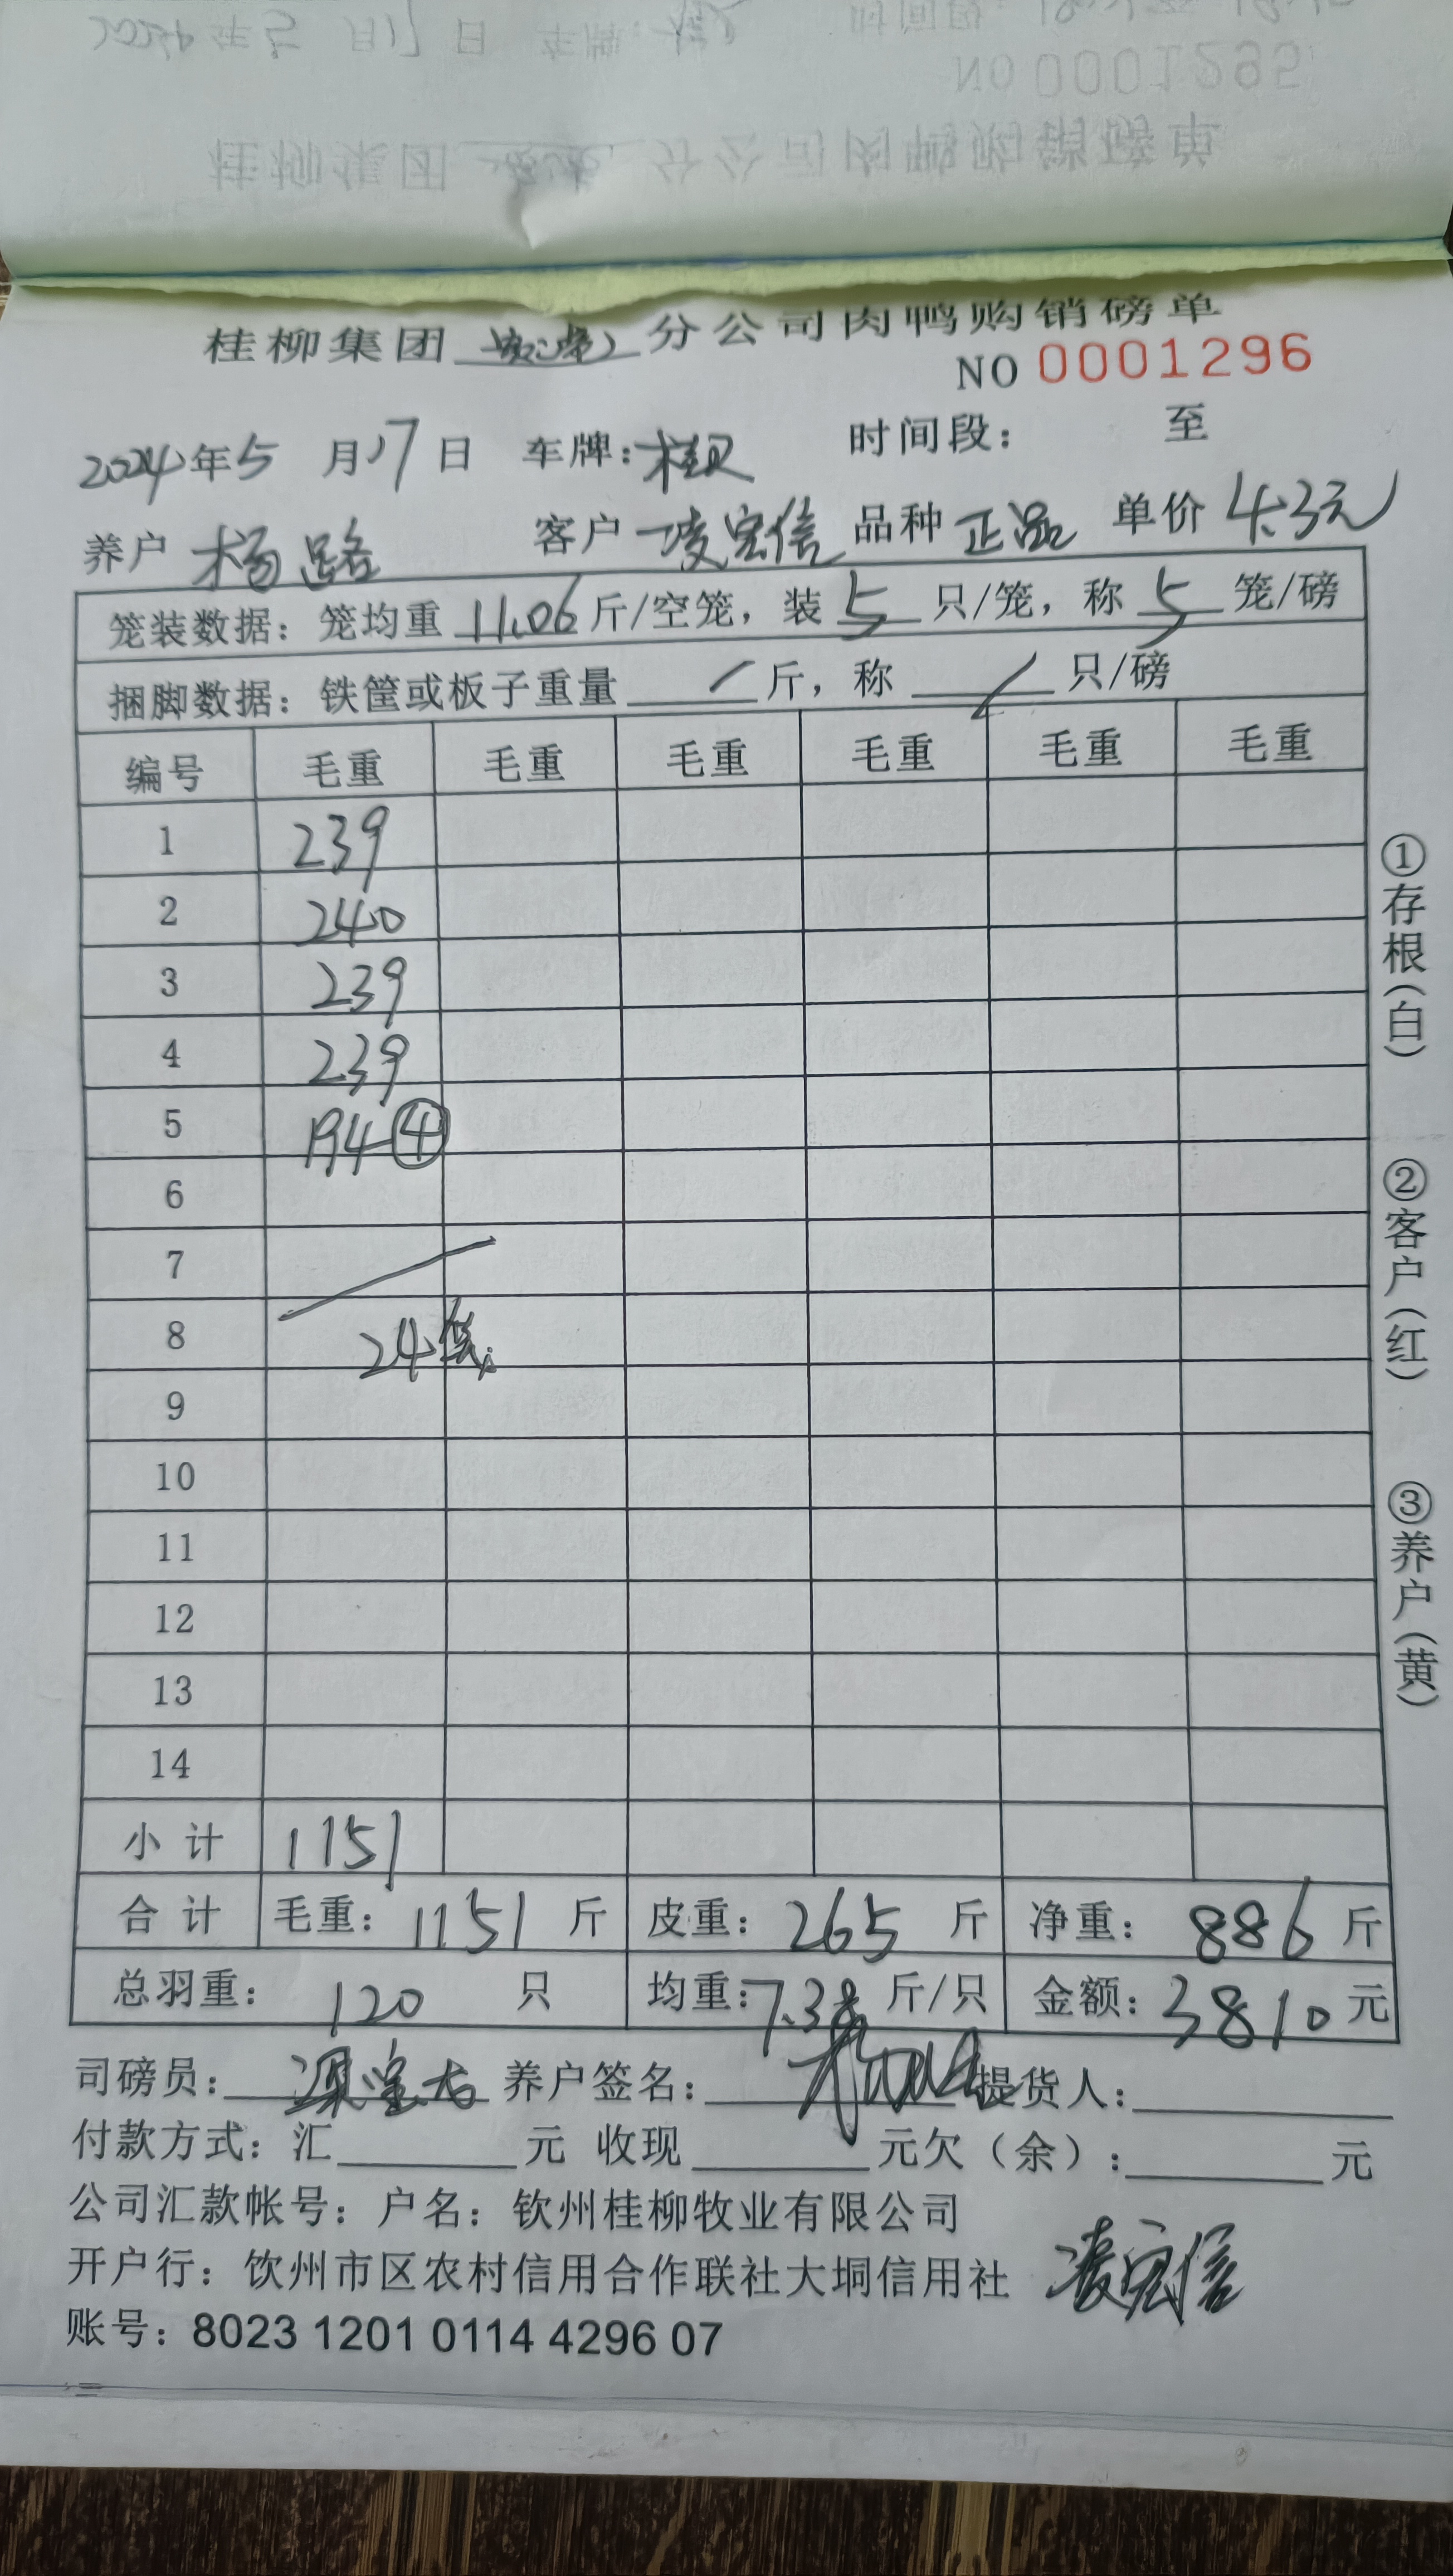 NO 0001295
桂柳集团 分公司肉鸭购销磅单
NO 0001296
2024年5月17日 车牌: 时间段: 至
养户 杨路 客户 凌宏信 品种 正品 单价 4.3元
笼装数据: 笼均重 11.06 斤/空笼, 装 5 只/笼, 称 5 笼/磅
捆脚数据: 铁筐或板子重量 / 斤, 称 / 只/磅
编号 毛重 毛重 毛重 毛重 毛重 毛重
1 239
2 240
3 239
4 239
5 194 ④
6
7
8 24
9
10
11
12
13
14
小计 1151
合计 毛重: 1151 斤 皮重: 265 斤 净重: 886 斤
总羽重: 120 只 均重: 7.38 斤/只 金额: 3810 元
①存根(白)
②客户(红)
③养户(黄)
司磅员: 养户签名: 提货人:
付款方式: 汇 元 收现 元欠(余): 元
公司汇款帐号: 户名: 钦州桂柳牧业有限公司
开户行: 饮州市区农村信用合作联社大垌信用社 凌宏信
账号: 8023 1201 0114 4296 07